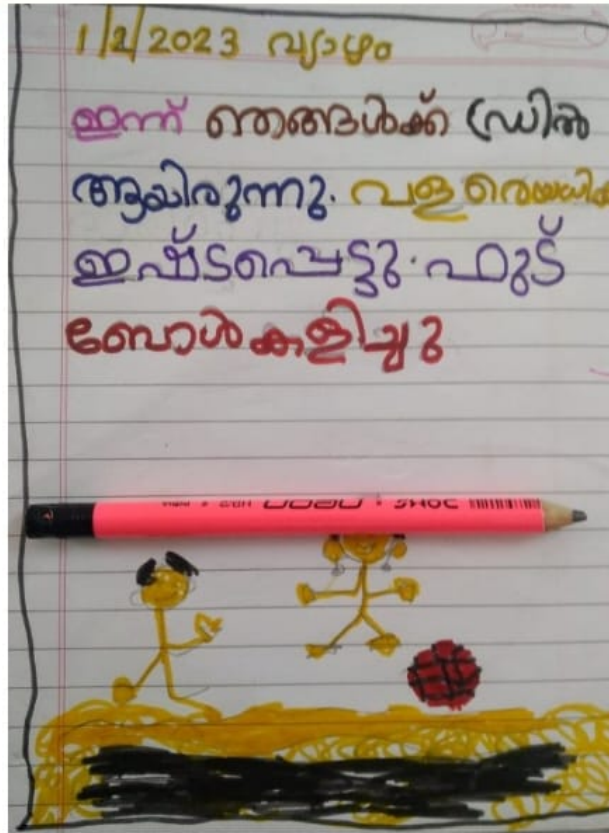 1/2/2023 വ്യാഴം
ഇന്ന് ഞങ്ങൾക്ക് ഡ്രിൽ
ആയിരുന്നു. വളരെയധിക
ഇഷ്ടപ്പെട്ടു. ഫുട്
ബോൾ കളിച്ചു
DOMS neon HB/2